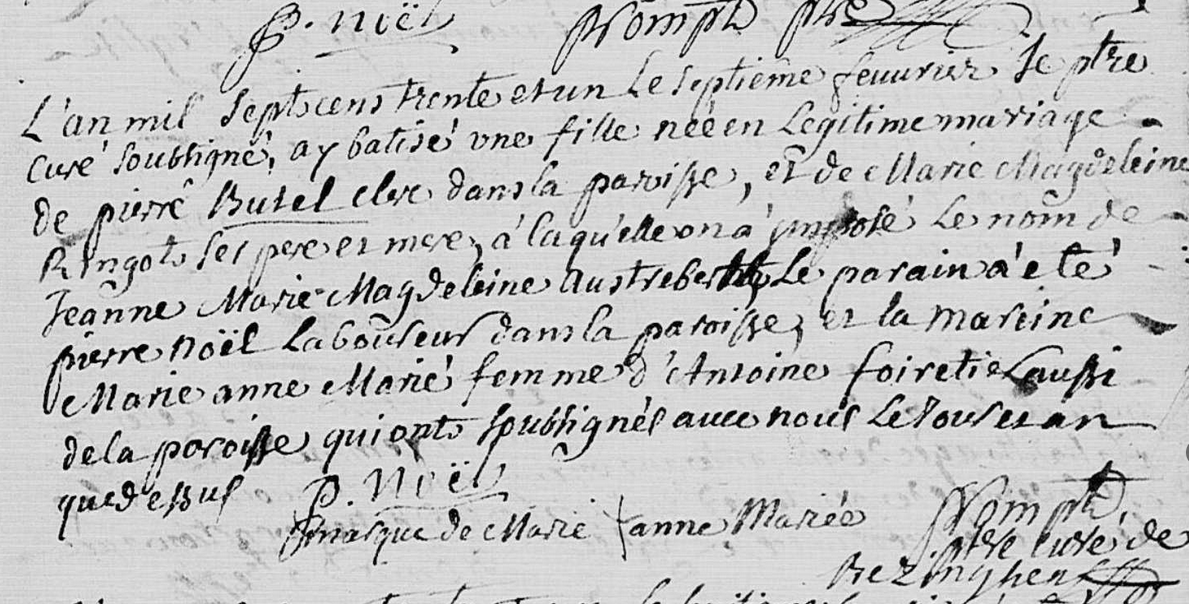 P. noël prompt ptre
L'an mil sept cens trente et un Le septiême feuurier Je ptre
curé soubsigné, ay batisé vne fille neé en Legitime mariage
de pierre Butel clerc dans la paroisse, et de Marie Magdeleine
Ringot ses pere et mere, à laqu'elle on a imposé Le nom de
Jeanne Marie Magdeleine Austreberthe Le parain à eté
pierre noël Laboureur dans la paroisse, et la mareine
Marie anne Marié femme d'Antoine foiretier aussi
de la paroisse qui ont soubsignés auec nous Le Jour et an
que dessus P. Noël
marque de Marie anne Mariée prompt,
ptre curé de
Bezinghen